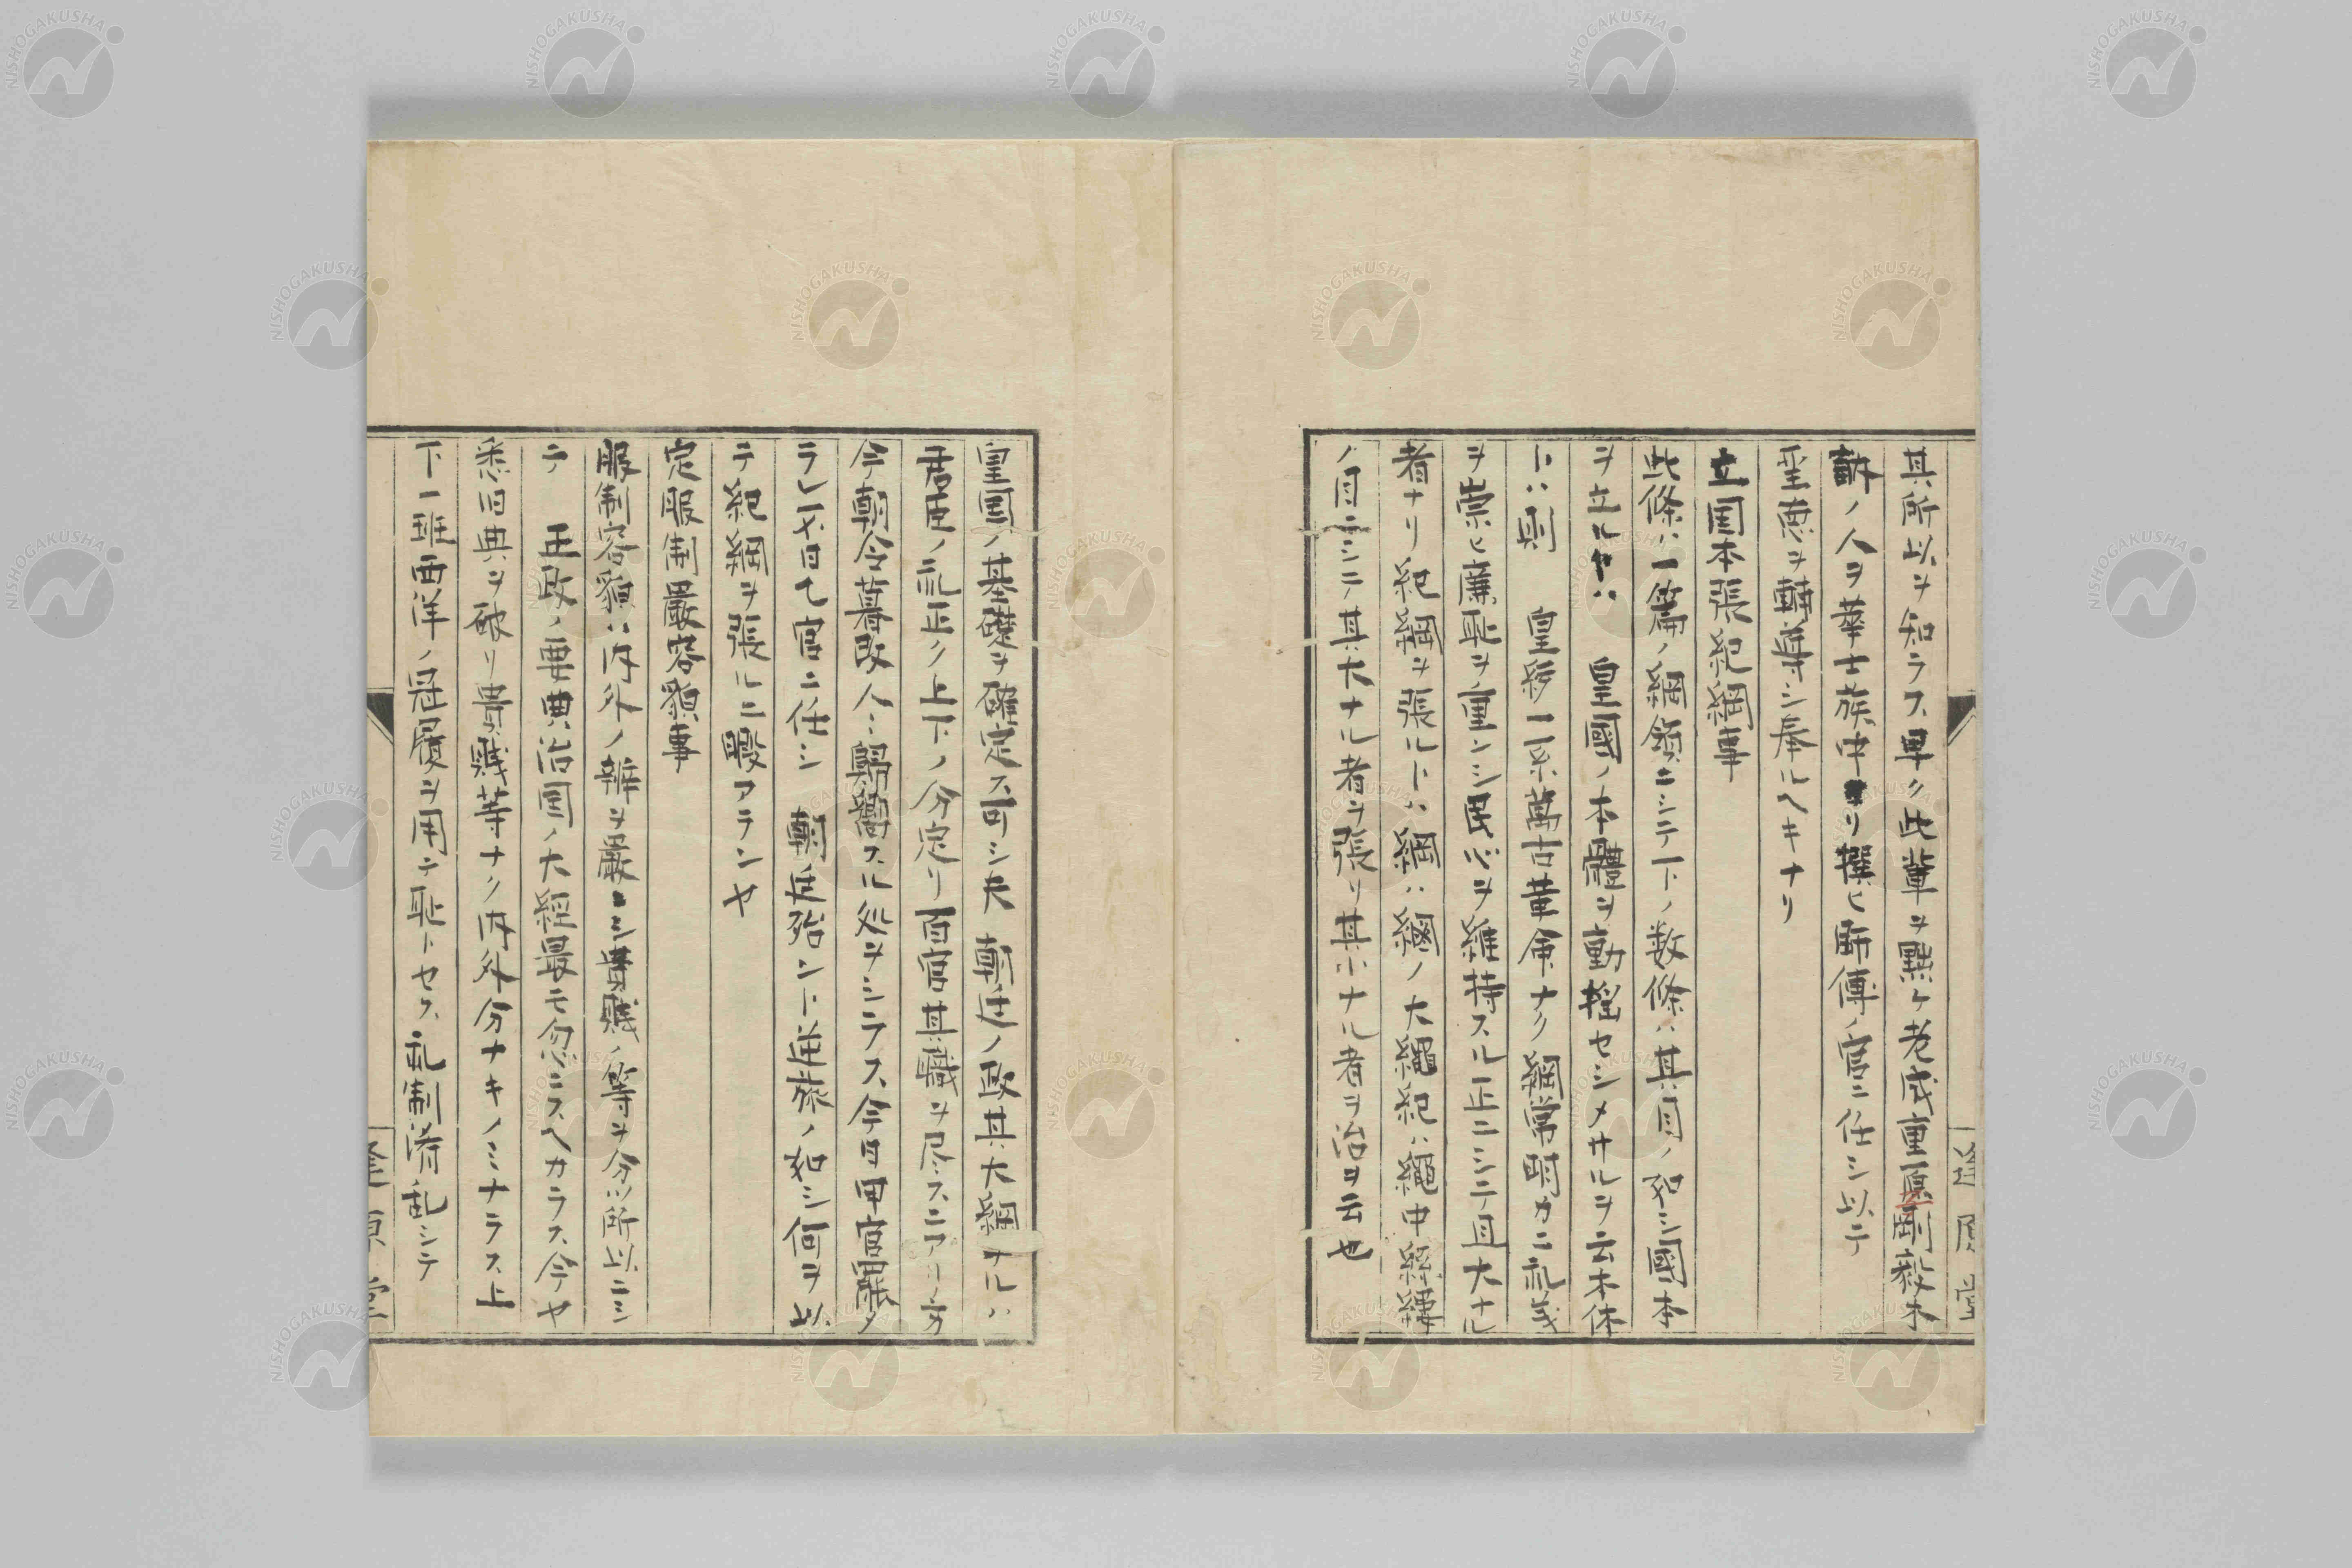 其所以ヲ知ラス早ク此輩ヲ黜ケ老成重厚剛毅木
訥ノ人ヲ華士族中ヨリ撰ヒ師傅ノ官ニ任シ以テ
聖慮ヲ輔導シ奉ルヘキナリ
立国本張紀綱事
此條ハ一篇ノ綱領ニシテ下ノ数條ハ其目ノ如シ國本
ヲ立ルヤハ 皇國ノ本體ヲ動揺セシメサルヲ云本体
トハ則 皇系一系萬古革命ナク綱常明カニ礼義
ヲ崇ヒ廉恥ヲ重ンシ民心ヲ維持スル正ニシテ且大ナル
者ナリ紀綱ヲ張ルトハ綱ハ網ノ大縄紀ハ縄中絲縷
ノ目ニシテ其大ナル者ヲ張リ其小ナル者ヲ治ヲ云也
皇国ノ基礎ヲ確定ス可シ夫 朝廷ノ政其大綱ナルハ
君臣ノ礼正ク上下ノ分定リ百官其職ヲ尽スニアリ方
今朝令暮改人々歸嚮スル処ヲシラス今日甲官罷メ
ラレ代日乙官ニ任シ 朝廷殆ント逆旅ノ如シ何ヲ以
テ紀綱ヲ張ルニ暇アランヤ
定服制嚴容貌事
服制容貌ハ内外ノ辨ヲ嚴ニシ貴賤ノ等ヲ分ツ所以ニシ
テ 王政ノ要典治国ノ大経最モ勿ニスヘカラス今ヤ
悉旧典ヲ破リ貴賤等ナク内外分ナキノミナラス上
下一班西洋ノ冠履ヲ用テ恥トセス礼制淆乱シテ
逢原堂
NISHOGAKUSHA